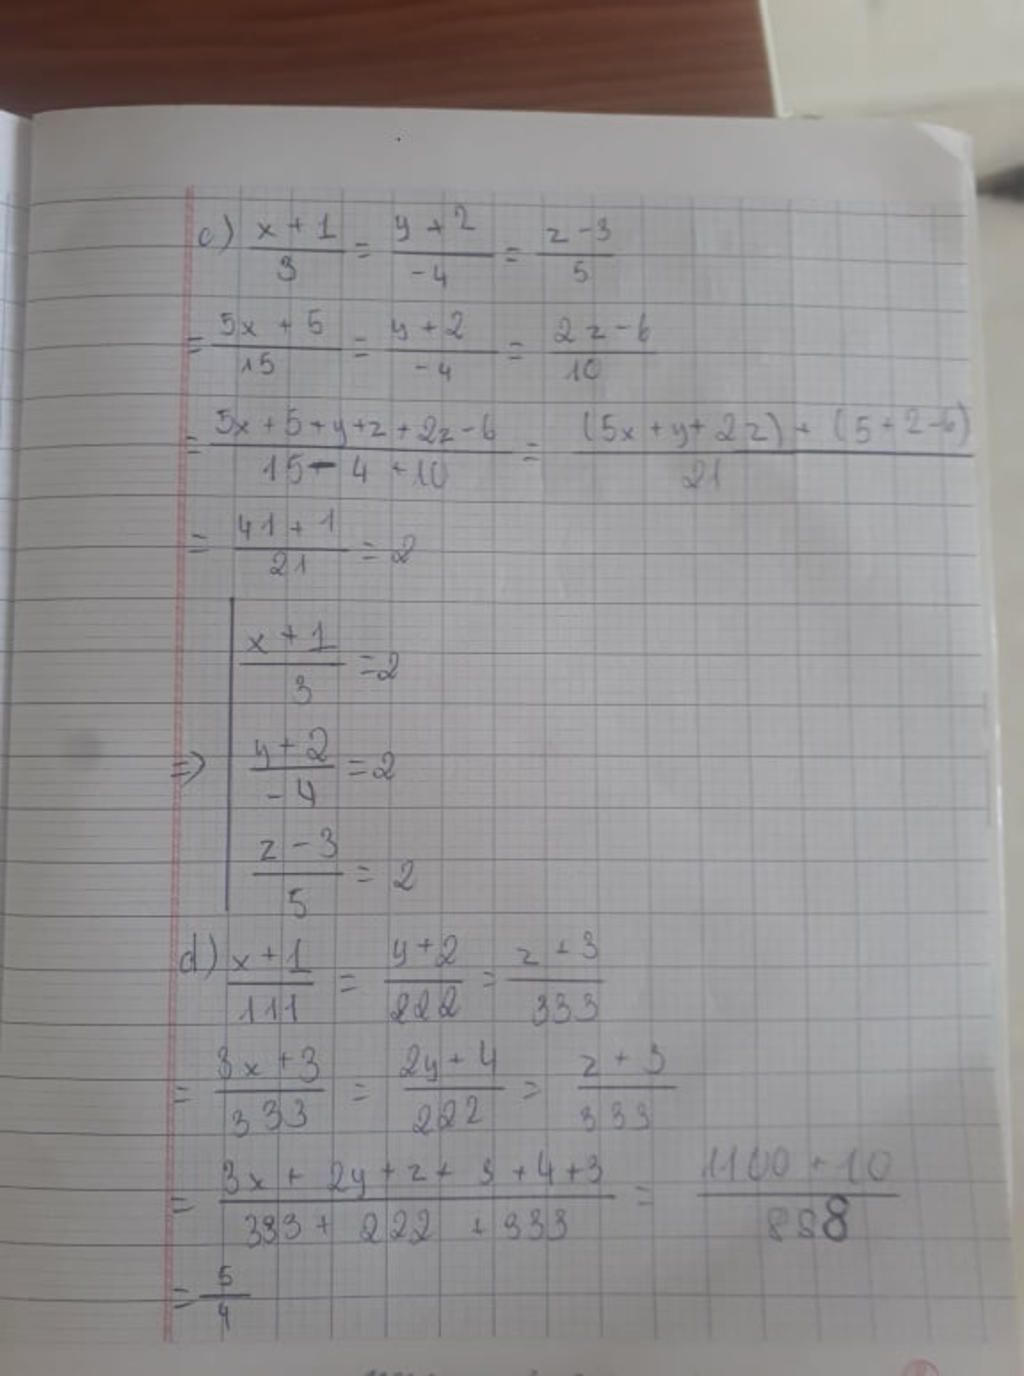 c) (x + 1)/3 = (y + 2)/-4 = (z - 3)/5
= (5x + 5)/15 = (y + 2)/-4 = (2z - 6)/10
= (5x + 5 + y + z + 2z - 6)/(15 - 4 + 10) = ((5x + y + 2z) + (5 + 2 - 6))/21
= (41 + 1)/21 = 2
(x + 1)/3 = 2
=> (y + 2)/-4 = 2
(z - 3)/5 = 2
d) (x + 1)/111 = (y + 2)/222 = (z + 3)/333
= (3x + 3)/333 = (2y + 4)/222 = (z + 3)/333
= (3x + 2y + z + 3 + 4 + 3)/(333 + 222 + 333) = (1100 + 10)/888
= 5/4